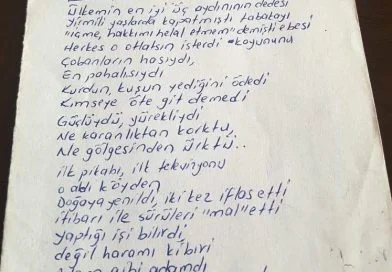 Ülkemin en iyi üç aydınının dedesi
Yirmili yaşlarda kapatmıştı tabakayı
"içme, hakkımı helal etmem" demişti ebesi
Herkes o otlatsın isterdi koyununu
Çobanların hasıydı,
En pahalısıydı
Kurdun, kuşun yediğini ödedi
Kimseye öte git demedi
Güçlüydü, yürekliydi
Ne karanlıktan korktu,
Ne gölgesinden ürktü..
ilk pikabı, ilk televizyonu
o aldı köyden
Doğaya yenildi, iki kez iflas etti
itibarı ile sürüleri "mal" etti
yaptığı işi bilirdi,
değil haramı kibiri
gibi adamdı